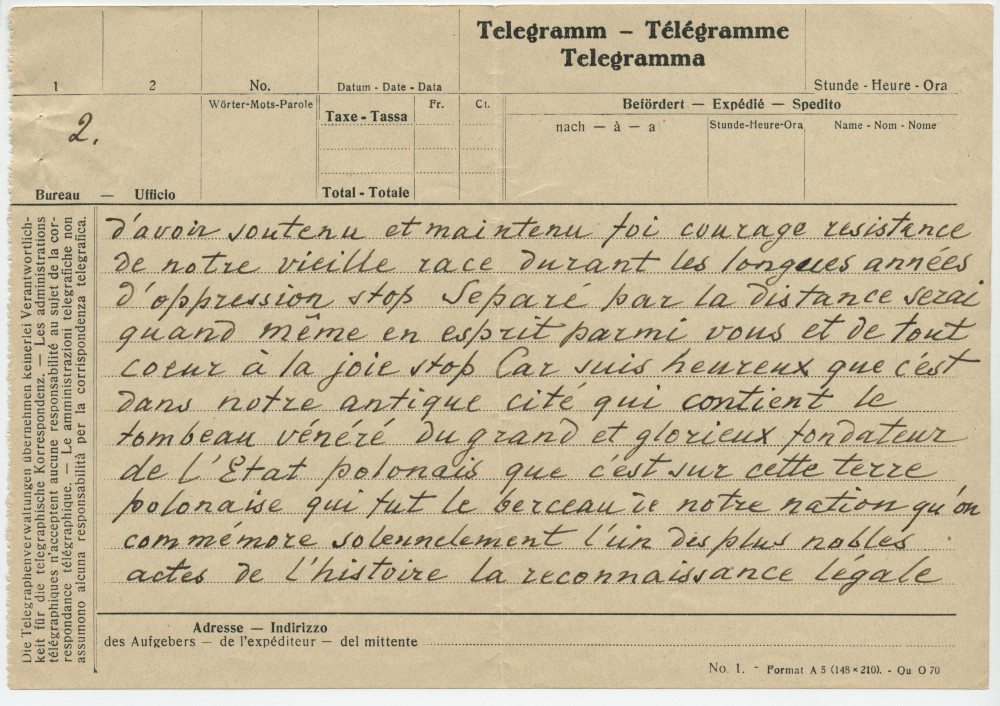 Telegramm – Télégramme
Telegramma
1
2
No.
Datum - Date - Data
Stunde - Heure - Ora
Wörter-Mots-Parole
Taxe - Tassa
Fr.
Ct.
Befördert — Expédié — Spedito
nach — à — a
Stunde-Heure-Ora
Name - Nom - Nome
2.
Bureau — Ufficio
Total - Totale
d'avoir soutenu et maintenu foi courage resistance
de notre vieille race durant les longues années
d'oppression stop Separé par la distance serai
quand même en esprit parmi vous et de tout
coeur à la joie stop Car suis heureux que c'est
dans notre antique cité qui contient le
tombeau vénéré du grand et glorieux fondateur
de l'Etat polonais que c'est sur cette terre
polonaise qui fut le berceau de notre nation qu'on
commémore solennelement l'un des plus nobles
actes de l'histoire la reconnaissance légale
Die Telegraphenverwaltungen übernehmen keinerlei Verantwortlich-
keit für die telegraphische Korrespondenz. — Les administrations
télégraphiques n'acceptent aucune responsabilité au sujet de la cor-
respondance télégraphique. — Le amministrazioni telegrafiche non
assumono alcuna responsabilità per la corrispondenza telegrafica.
Adresse — Indirizzo
des Aufgebers — de l'expéditeur — del mittente
No. 1. - Format A 5 (148 × 210). - Qu O 70